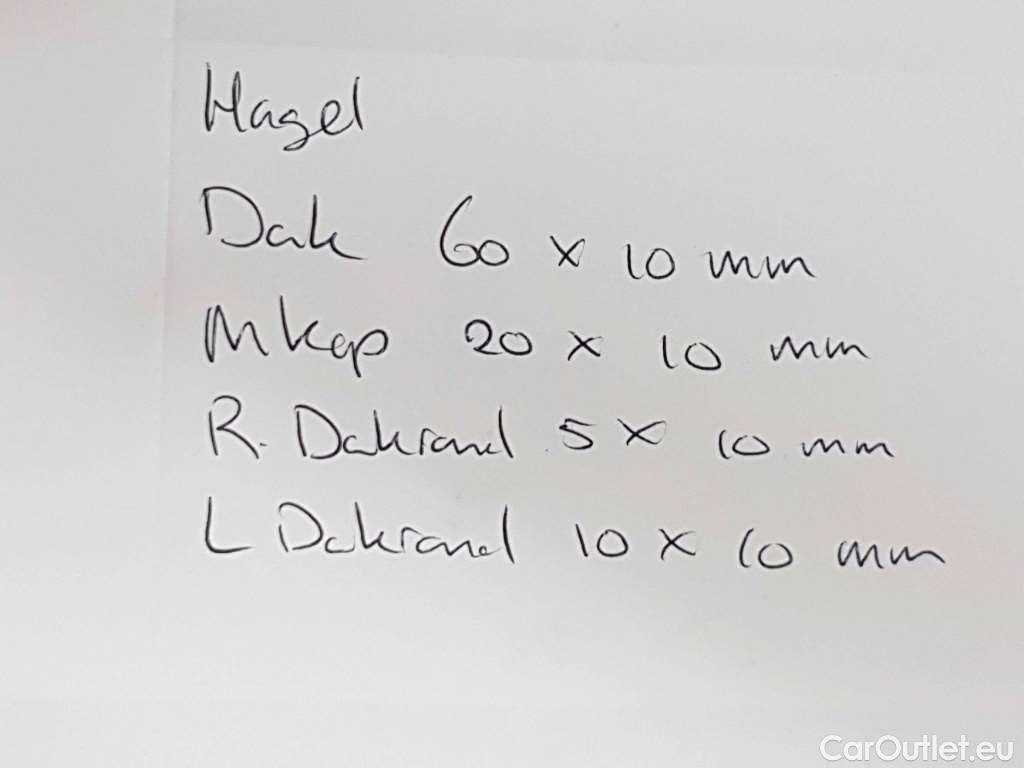 Hagel
Dak 60 x 10 mm
Mkap 20 x 10 mm
R. Dakrand 5 x 10 mm
L Dakrand 10 x 10 mm
CarOutlet.eu